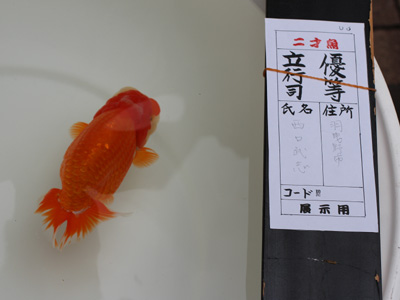 二才魚
優等
立行司
住所
氏名
西口
コード
展示用